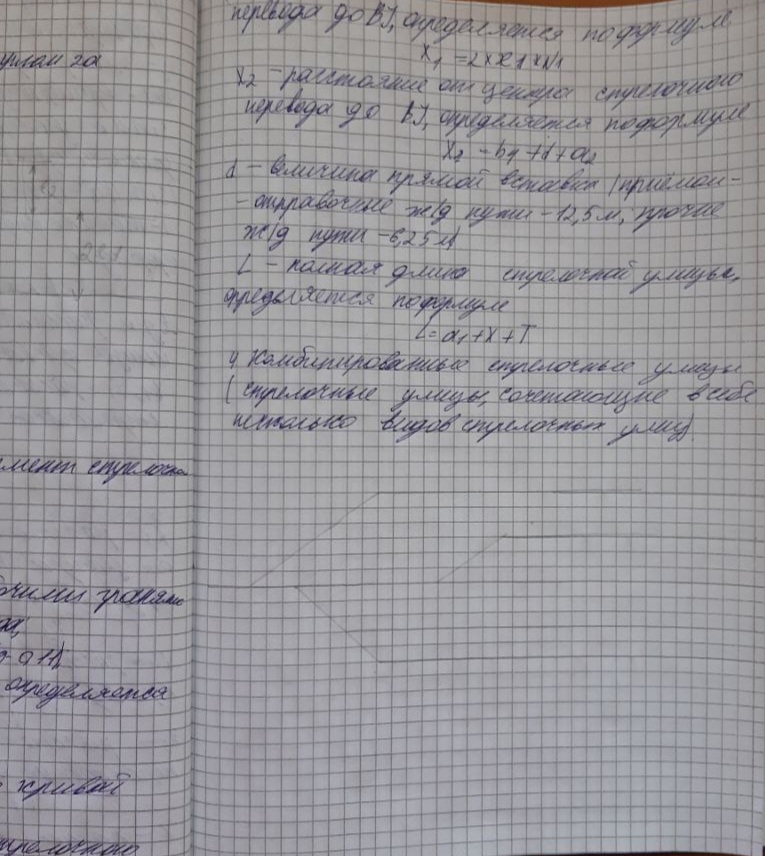 перевода до ВУ, определяется по формуле
X₁ = 2 x
X₂ - расстояние от центра стрелочного
перевода до ВУ, определяется по формуле
X₂ - b₁ + d + a₂
d - величина прямой вставки (приёмоот-
- отправочные ж/д пути - 12,5 м, прочие
ж/д пути - 6,25 м)
L - полная длина стрелочной улицы,
определяется по формуле
L = a₁ + X + T
4. Комбинированные стрелочные улицы
(стрелочные улицы, сочетающие в себе
несколько видов стрелочных улиц)
углом 2α
элемент стрелочно
рабочими гранями
определяется
кривой
стрелочного